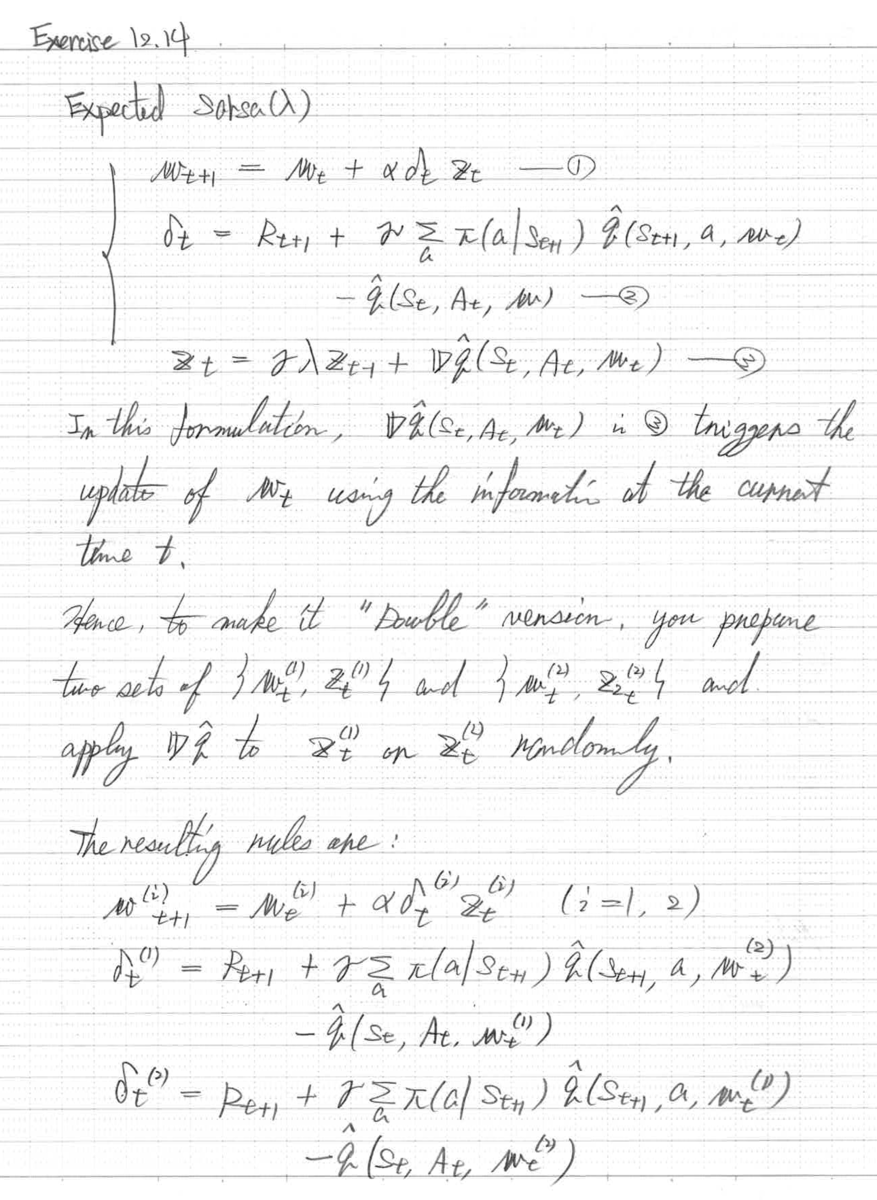 Exercise 12.14
Expected Sarsa(λ)
w_{t+1} = w_t + α δ_t z_t — ①
δ_t = R_{t+1} + γ Σ_a π(a|S_{t+1}) q̂(S_{t+1}, a, w_t)
− q̂(S_t, A_t, w) — ②
z_t = γλz_{t-1} + ∇q̂(S_t, A_t, w_t) — ③
In this formulation, ∇q̂(S_t, A_t, w_t) in ③ triggers the
update of w_t using the information at the current
time t.
Hence, to make it "Double" version, you prepare
two sets of {w_t^{(1)}, z_t^{(1)}} and {w_t^{(2)}, z_{2t}^{(2)}} and
apply ∇q̂ to z_t^{(1)} or z_t^{(2)} randomly.
The resulting rules are :
w_{t+1}^{(i)} = w_t^{(i)} + α δ_t^{(i)} z_t^{(i)} (i=1, 2)
δ_t^{(1)} = R_{t+1} + γ Σ_a π(a|S_{t+1}) q̂(S_{t+1}, a, w_t^{(2)})
− q̂(S_t, A_t, w_t^{(1)})
δ_t^{(2)} = R_{t+1} + γ Σ_a π(a|S_{t+1}) q̂(S_{t+1}, a, w_t^{(1)})
− q̂(S_t, A_t, w_t^{(2)})